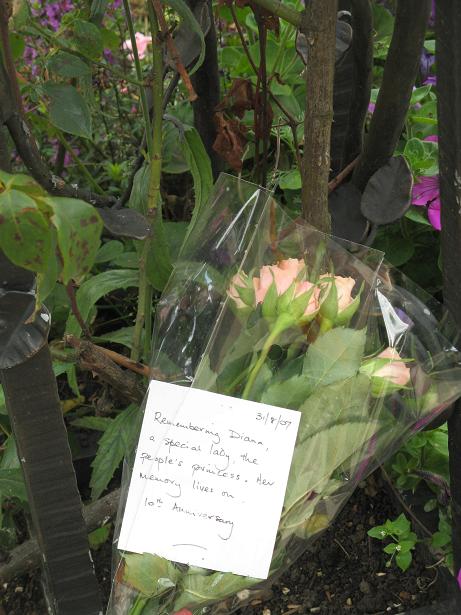 31/8/07
Remembering Diana,
a special lady, the
people's princess. Her
memory lives on.
10th Anniversary